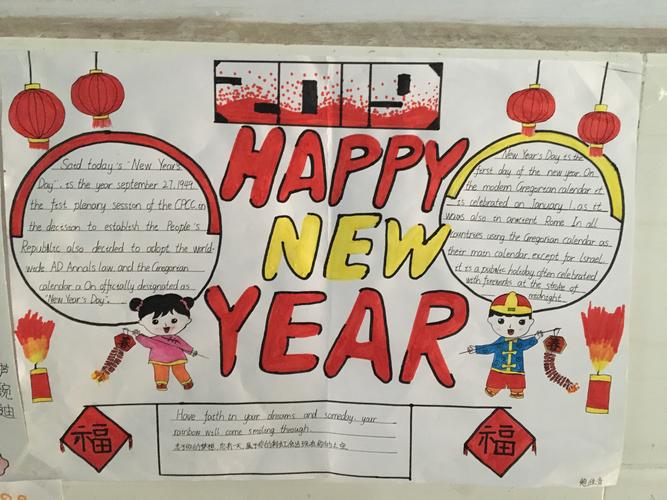 2019
HAPPY
NEW
YEAR
Said today's "New Year's
Day", is the year september 27.1949.
the fist plenary session of the CPCC.in
the decision to establish the People's
Republic also decided to adopt the world-
wide AD Annals law, and the Gregorian
calendar a On officially designated as
"New Year's Day".
New Year's Day is the
first day of the new year. On
the modern Gregorian calendar it
is celebrated on January 1. as it
was also in ancient Rome. In all
countries using the Gregorian calendar as
their main calendar except for Israel,
it is a public holiday often celebrated
with fireworks at the stroke of
midnight.
春
春
福
Have faith in your dreams and someday, your
rainbow will come smiling through.
忠于你的梦想,总有一天,属于你的彩虹会出现在你的上空
福